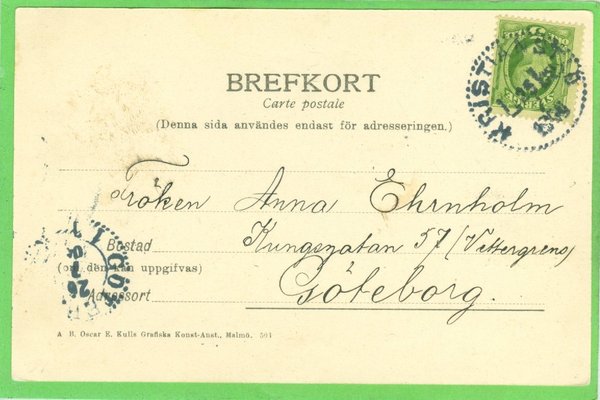 BREFKORT
Carte postale
(Denna sida användes endast för adresseringen.)
KRISTIANSTAD
Fröken Anna Ehrnholm
Bostad Kungsgatan 57 (Vettergrens)
(om den kan uppgifvas)
Adressort Göteborg.
A. B. Oscar E. Kulls Grafiska Konst-Anst., Malmö. 501